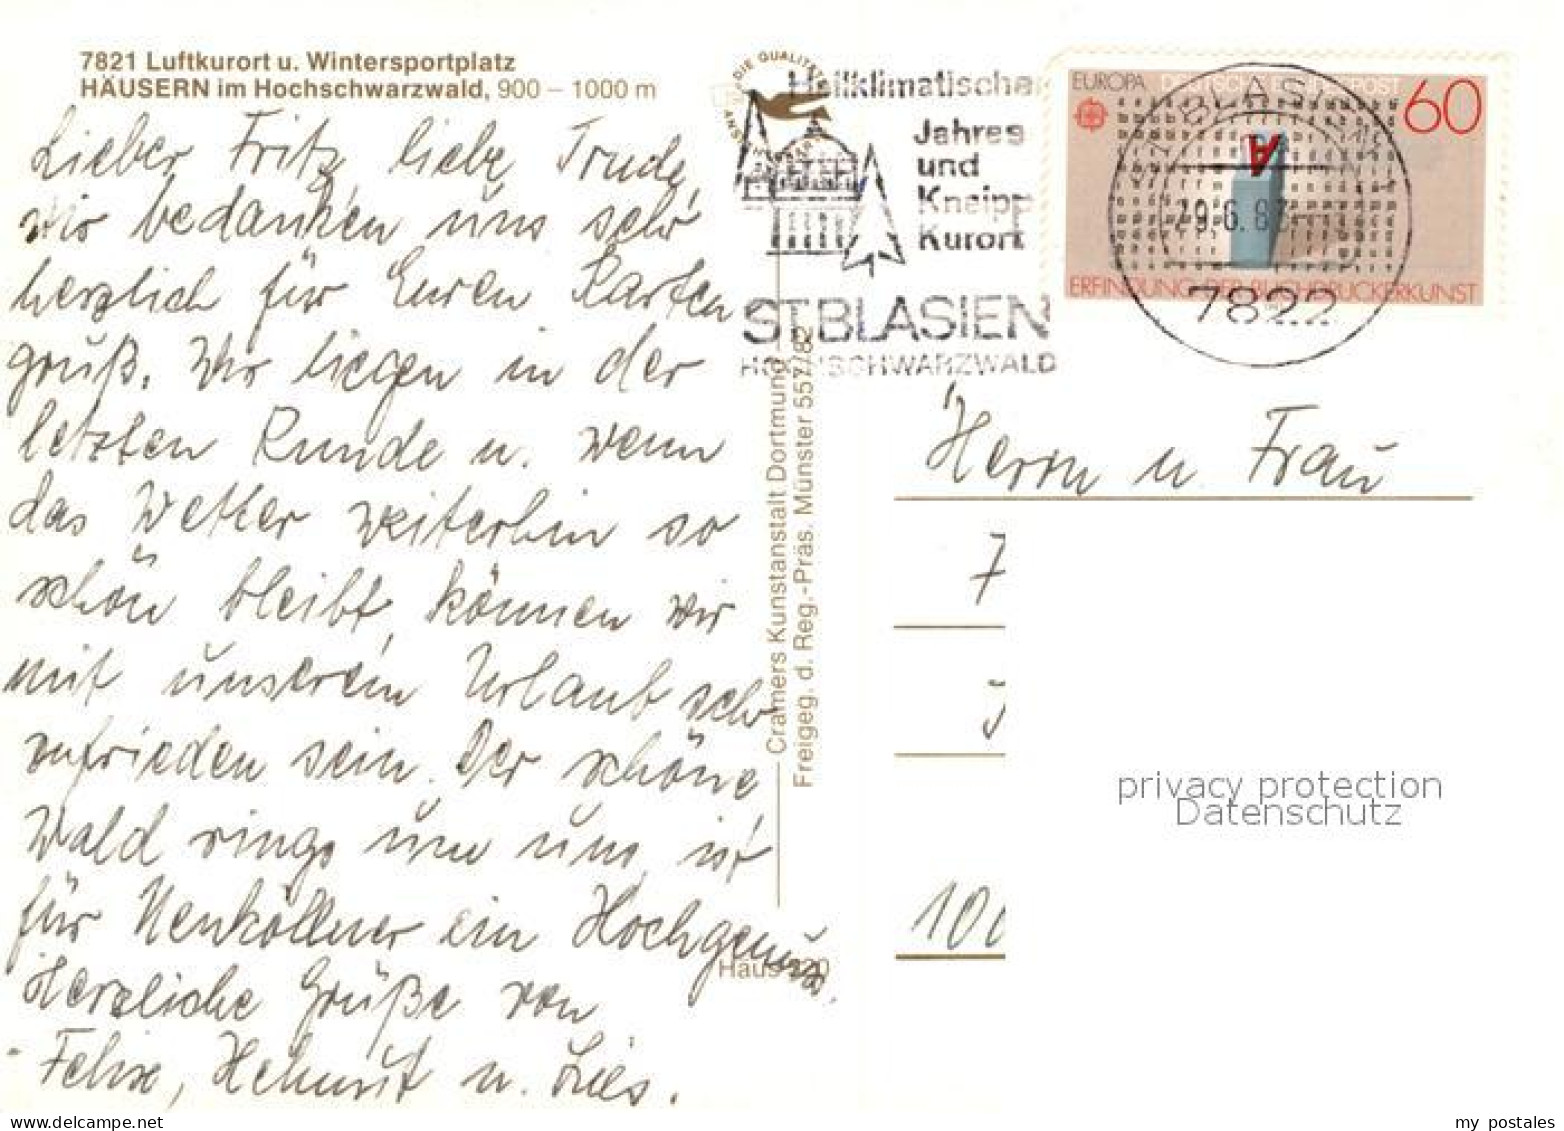 7821 Luftkurort u. Wintersportplatz
HÄUSERN im Hochschwarzwald, 900 – 1000 m
Lieber Fritz, liebe Trude,
wir bedanken uns sehr
herzlich für Euren Karten
gruß. Wir liegen in der
letzten Runde u. wenn
das Wetter weiterhin so
schön bleibt, können wir
mit unserem Urlaub sehr
zufrieden sein. Der schöne
Wald rings um uns, ist
für Neuköllner ein Hochgenuss.
Herzliche Grüße von
Felix, Helmut u. Lies.
DIE QUALITÄTS
Heilklimatischer
Jahres
und
Kneipp
Kurort
ST.BLASIEN
HOCHSCHWARZWALD
Cramers Kunstanstalt Dortmund
Freigeg. d. Reg.-Präs. Münster 557/82
Häus 220
EUROPA DEUTSCHE BUNDESPOST 60
ERFINDUNG DER BUCHDRUCKERKUNST
ST BLASIEN
29.6.83
7822
Herrn u. Frau
7
J
100
privacy protection
Datenschutz
delcampe.net
my_postales